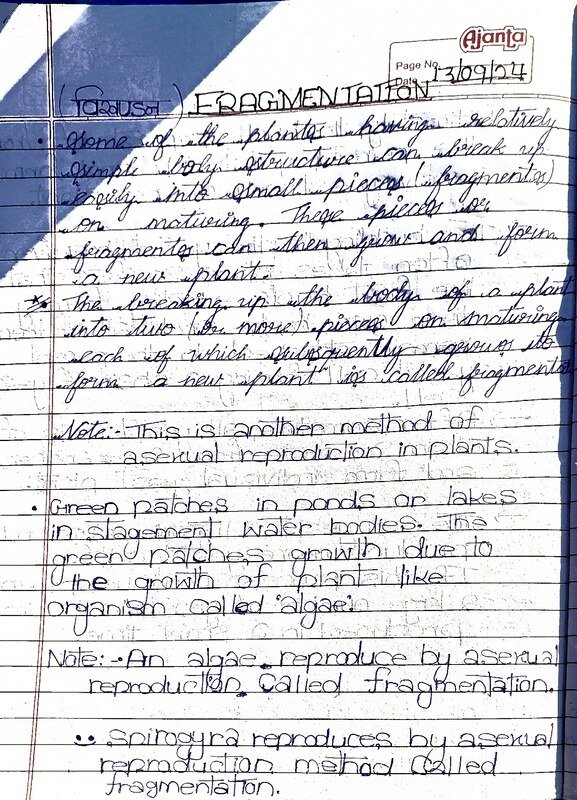 Ajanta
Page No.
Date 13/09/24
(विखण्डन) FRAGMENTATION
• Some of the plants having relatively
simple body structure can break up
easily into small pieces (fragmentes)
on maturing. These pieces or
fragmentes can then grow and form
a new plant.
The breaking up the body of a plant
into two (or more) pieces on maturing
each of which subsquently grows to
form a new plant is called fragmentation
Note:- This is another method of
asexual reproduction in plants.
• Green patches in ponds or lakes
in stagement water bodies. The
green patches growth due to
the growth of plant like
organism called 'algae'.
Note:- An algae reproduce by asexual
reproduction called fragmentation.
Spirogyra reproduces by asexual
reproduction method called
fragmentation.